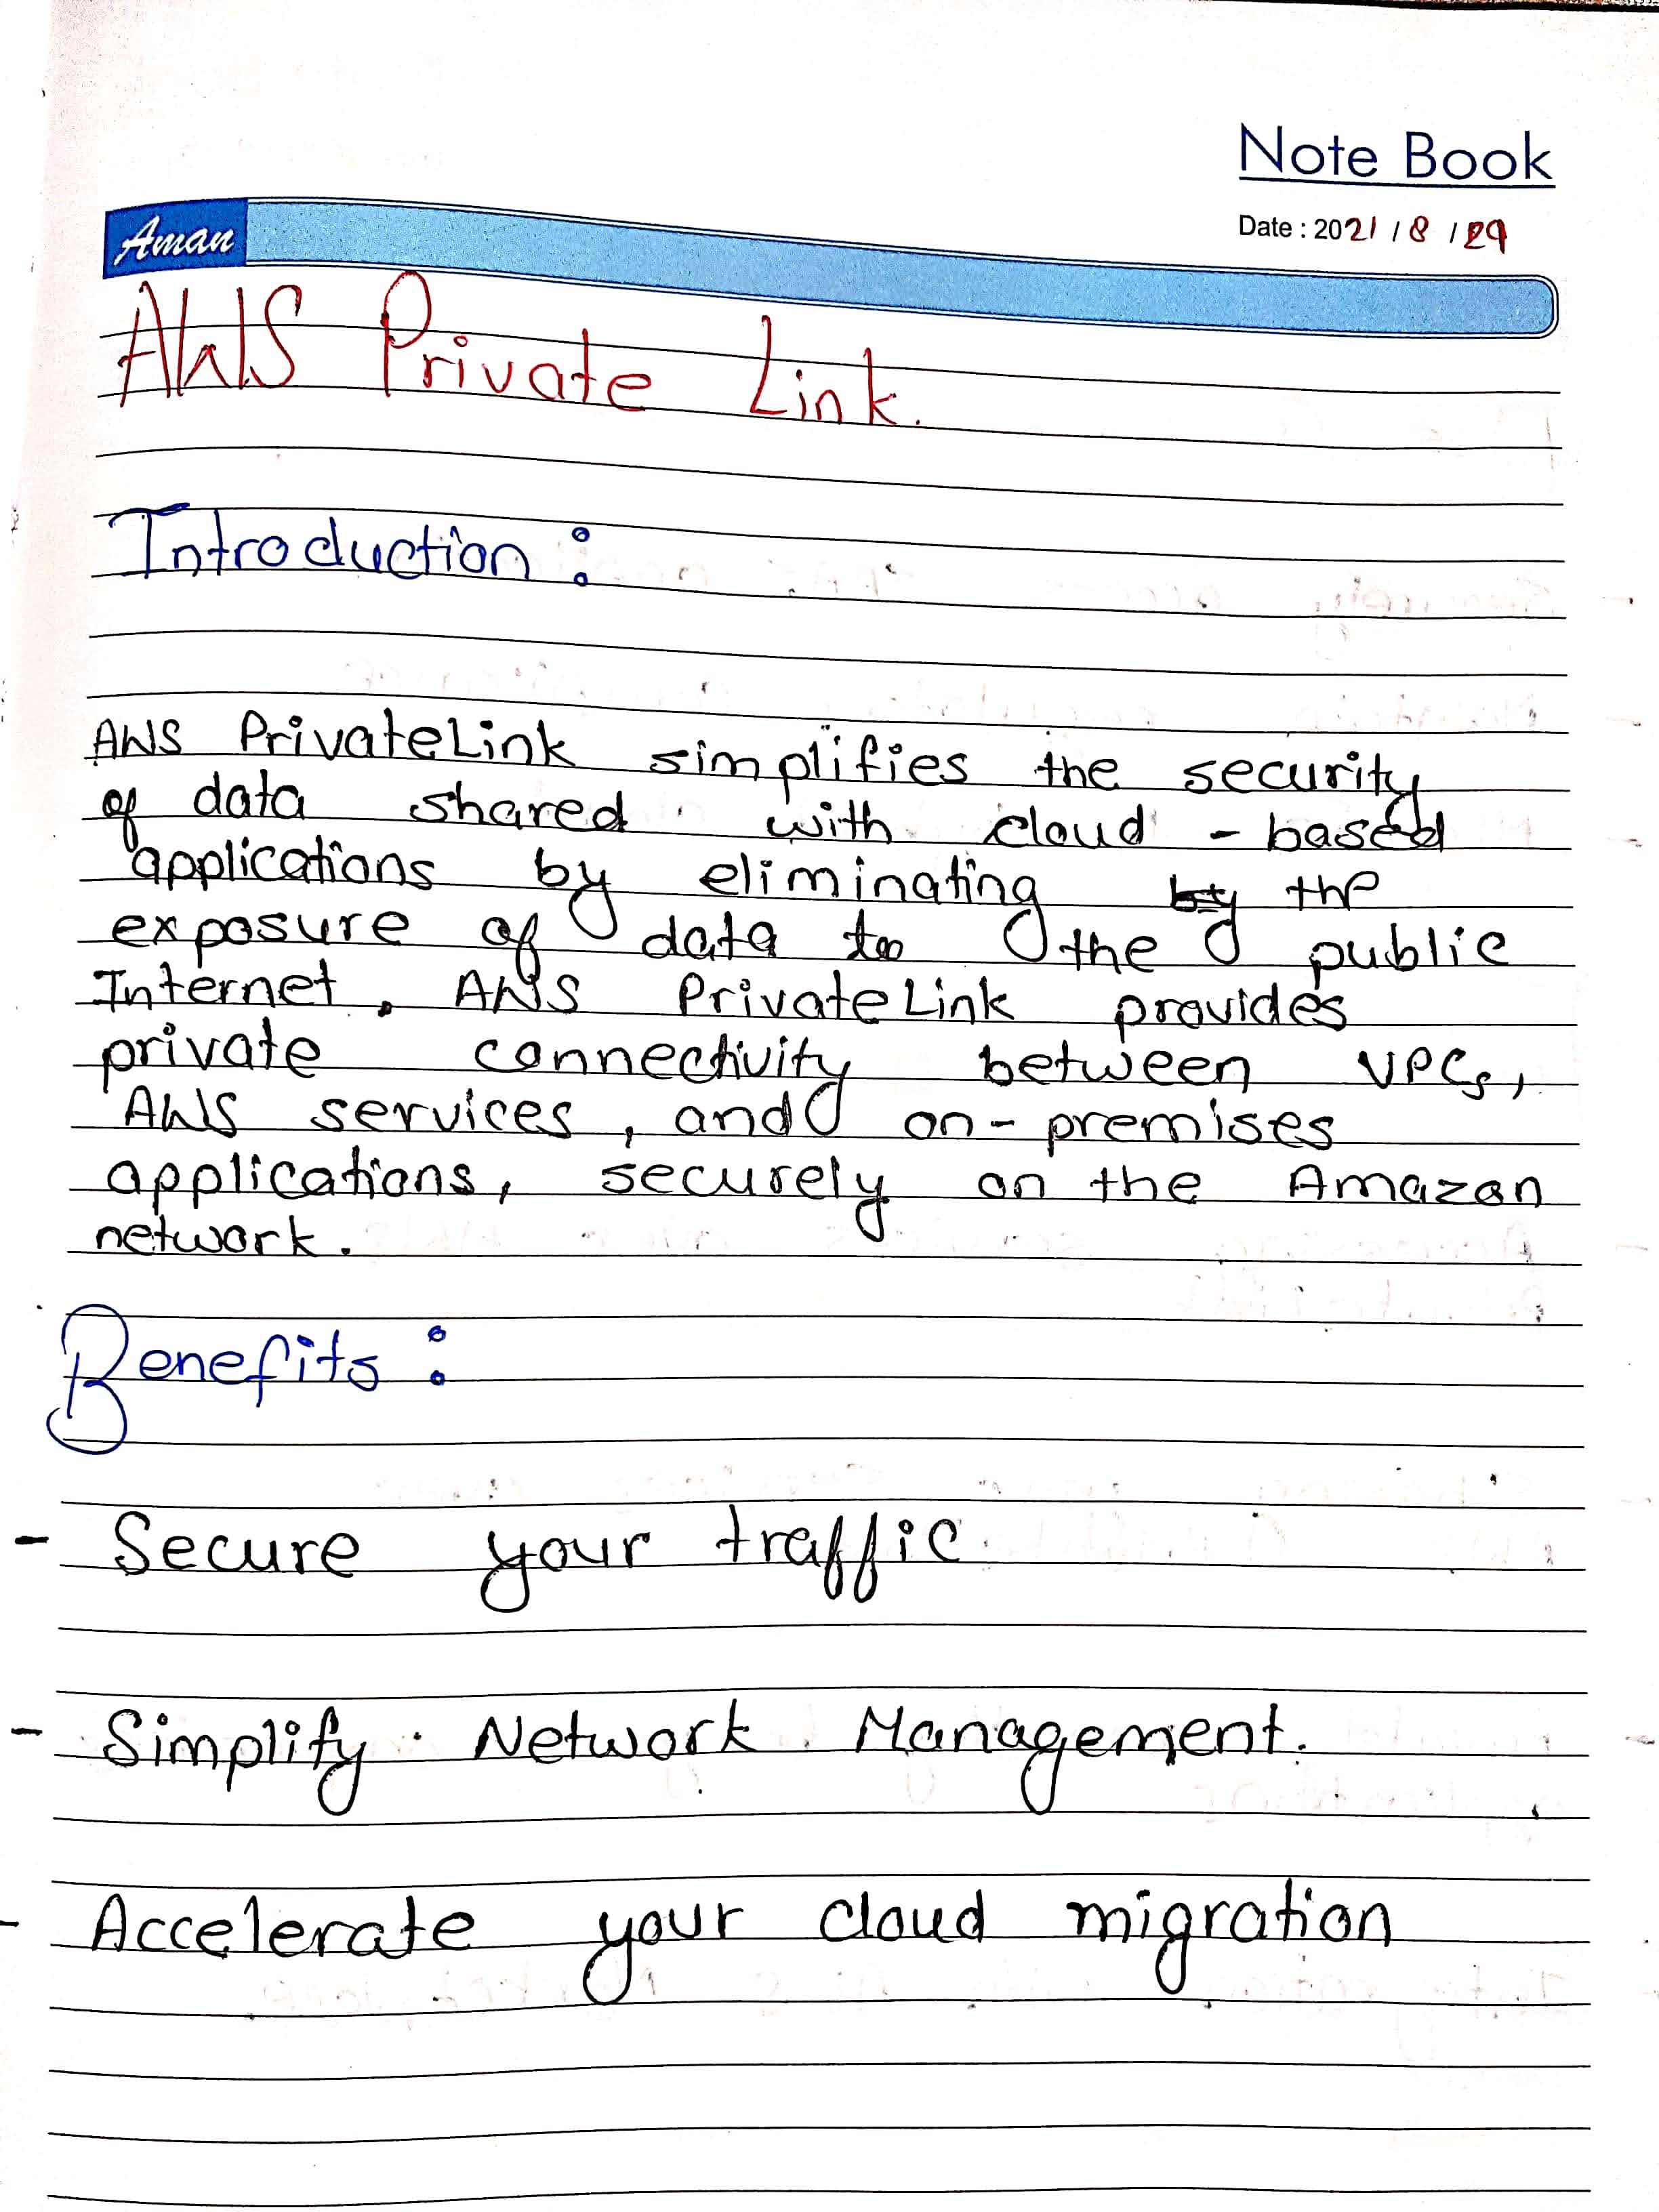 Note Book
Date : 2021 / 8 / 29
Aman
AWS Private Link.
Introduction :
AWS PrivateLink simplifies the security
of data shared with cloud - based
applications by eliminating the
exposure of data to the public
Internet. AWS PrivateLink provides
private connectivity between VPCs,
AWS services, and on-premises
applications, securely on the Amazon
network.
Benefits :
- Secure your traffic.
- Simplify Network Management.
- Accelerate your cloud migration